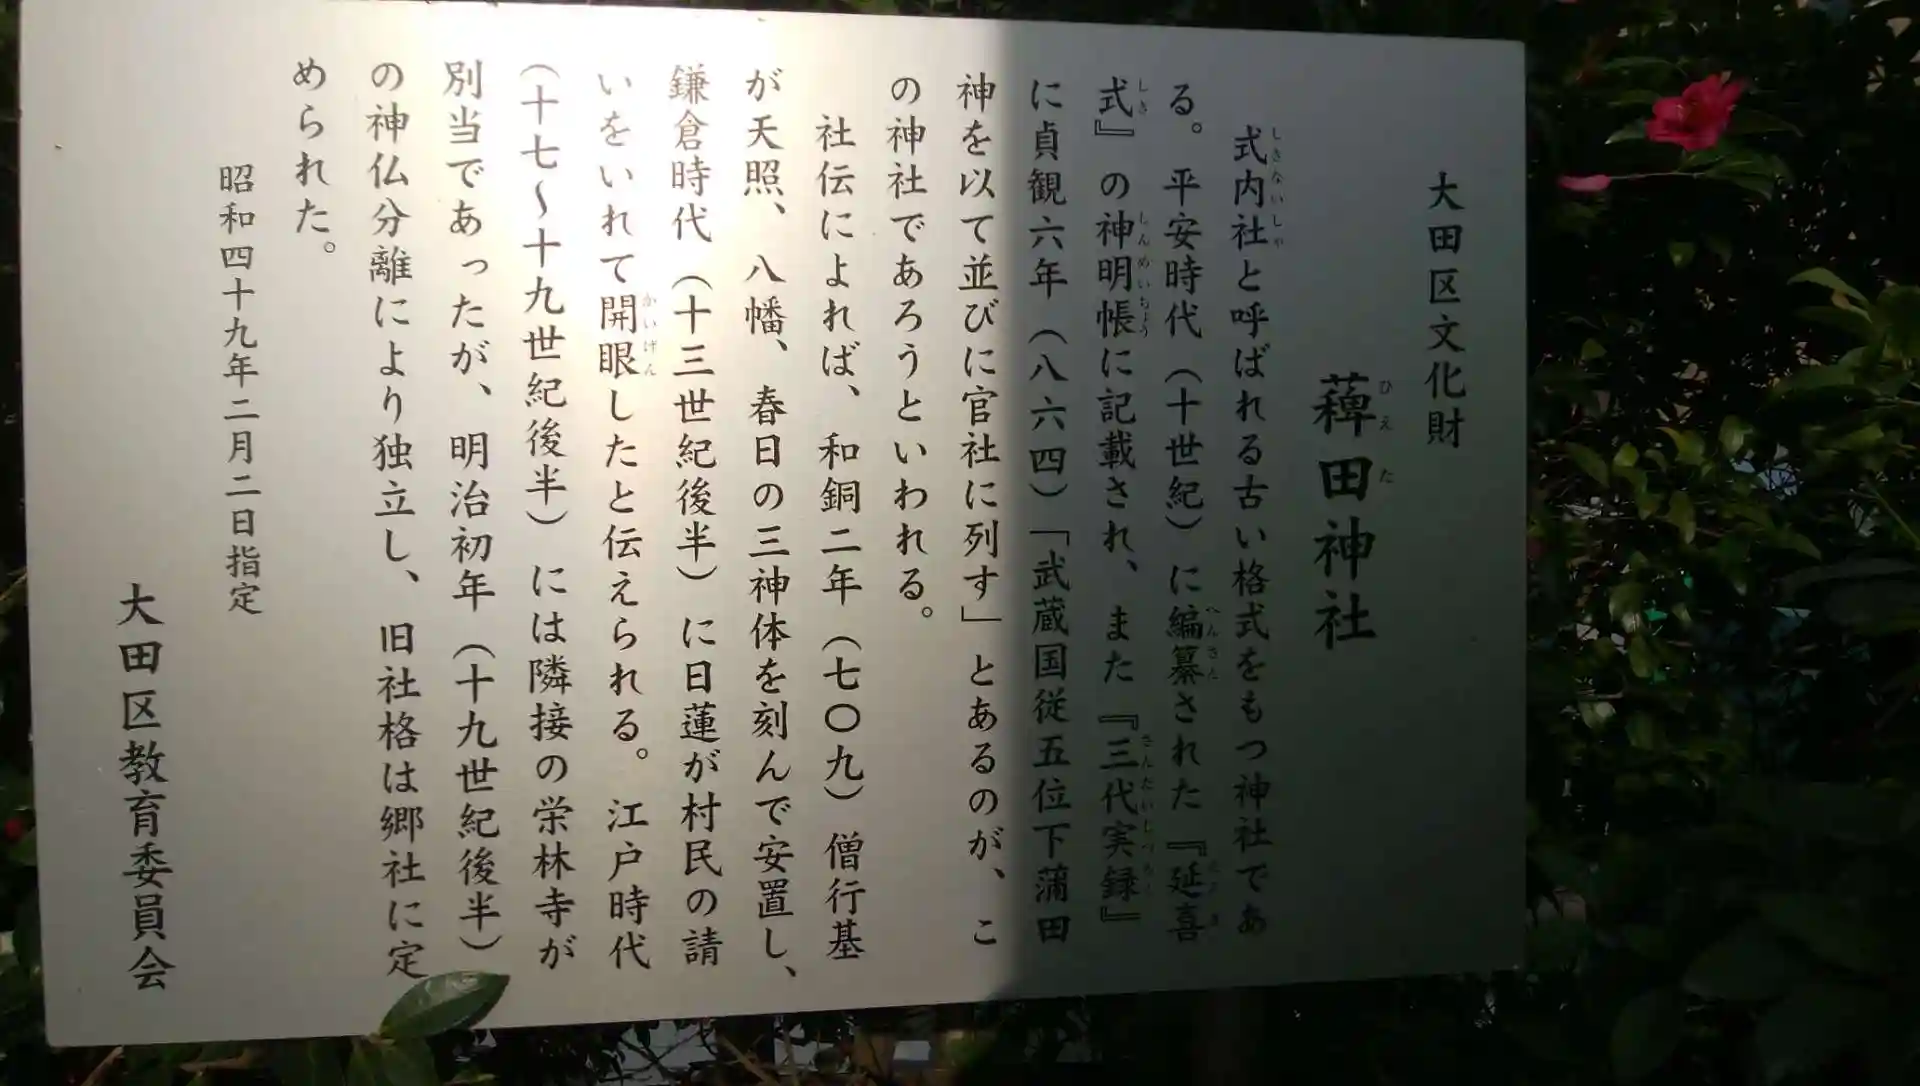 大田区文化財
薭田神社
ひえた
式内社と呼ばれる古い格式をもつ神社であ
しきないしゃ
る。平安時代（十世紀）に編纂された『延喜
へんさん
式』の神明帳に記載され、また『三代実録』
しき しんめいちょう さんだいじつろく
に貞観六年（八六四）「武蔵国従五位下蒲田
神を以て並びに官社に列す」とあるのが、こ
の神社であろうといわれる。
社伝によれば、和銅二年（七〇九）僧行基
が天照、八幡、春日の三神体を刻んで安置し、
鎌倉時代（十三世紀後半）に日蓮が村民の請
いをいれて開眼したと伝えられる。江戸時代
かいげん
（十七〜十九世紀後半）には隣接の栄林寺が
別当であったが、明治初年（十九世紀後半）
の神仏分離により独立し、旧社格は郷社に定
められた。
昭和四十九年二月二日指定
大田区教育委員会